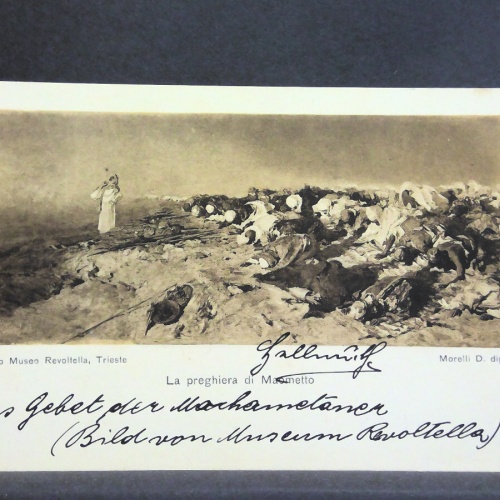 o Museo Revoltella, Trieste
Morelli D. dip
La preghiera di Maometto
s Gebet der Machametaner
(Bild von Museum Revoltella)